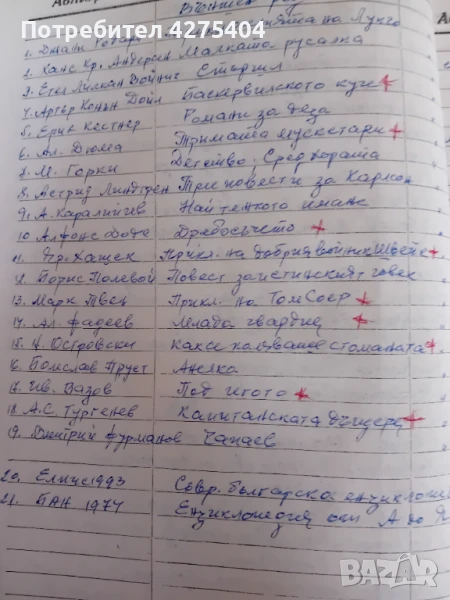 Потребител 4275404
1. Джани Родари на Лунчо
2. Ханс Кр. Андерсен Малката русалка
3. Етел Лилиан Войнич Стършел
4. Артър Конън Дойл Баскервилското куче
5. Ерик Кестнер Романи за деца
6. Ал. Дюма Тримата мускетари
7. М. Горки Детство; Сред хората
8. Астрид Линдгрен Три повести за Карлсон
9. А. Каралийчев Най-тежкото имане
10. Алфонс Доде Дребосъчето
11. Яр. Хашек Прикл. на добрия войник Швейк
12. Борис Полевой Повест за истинския човек
13. Марк Твен Прикл. на Том Соер
14. Ал. Фадеев Млада гвардия
15. Н. Островски Как се каляваше стоманата
16. Болислав Пруст Анелка
17. Ив. Вазов Под игото
18. А.С. Тургенев Капитанската дъщеря
19. Дмитрий Фурманов Чапаев
20. Елпис 1993 Съвр. българска енциклопе
21. БАН 1974 Енциклопедия от А до Я
BAZAR.bg